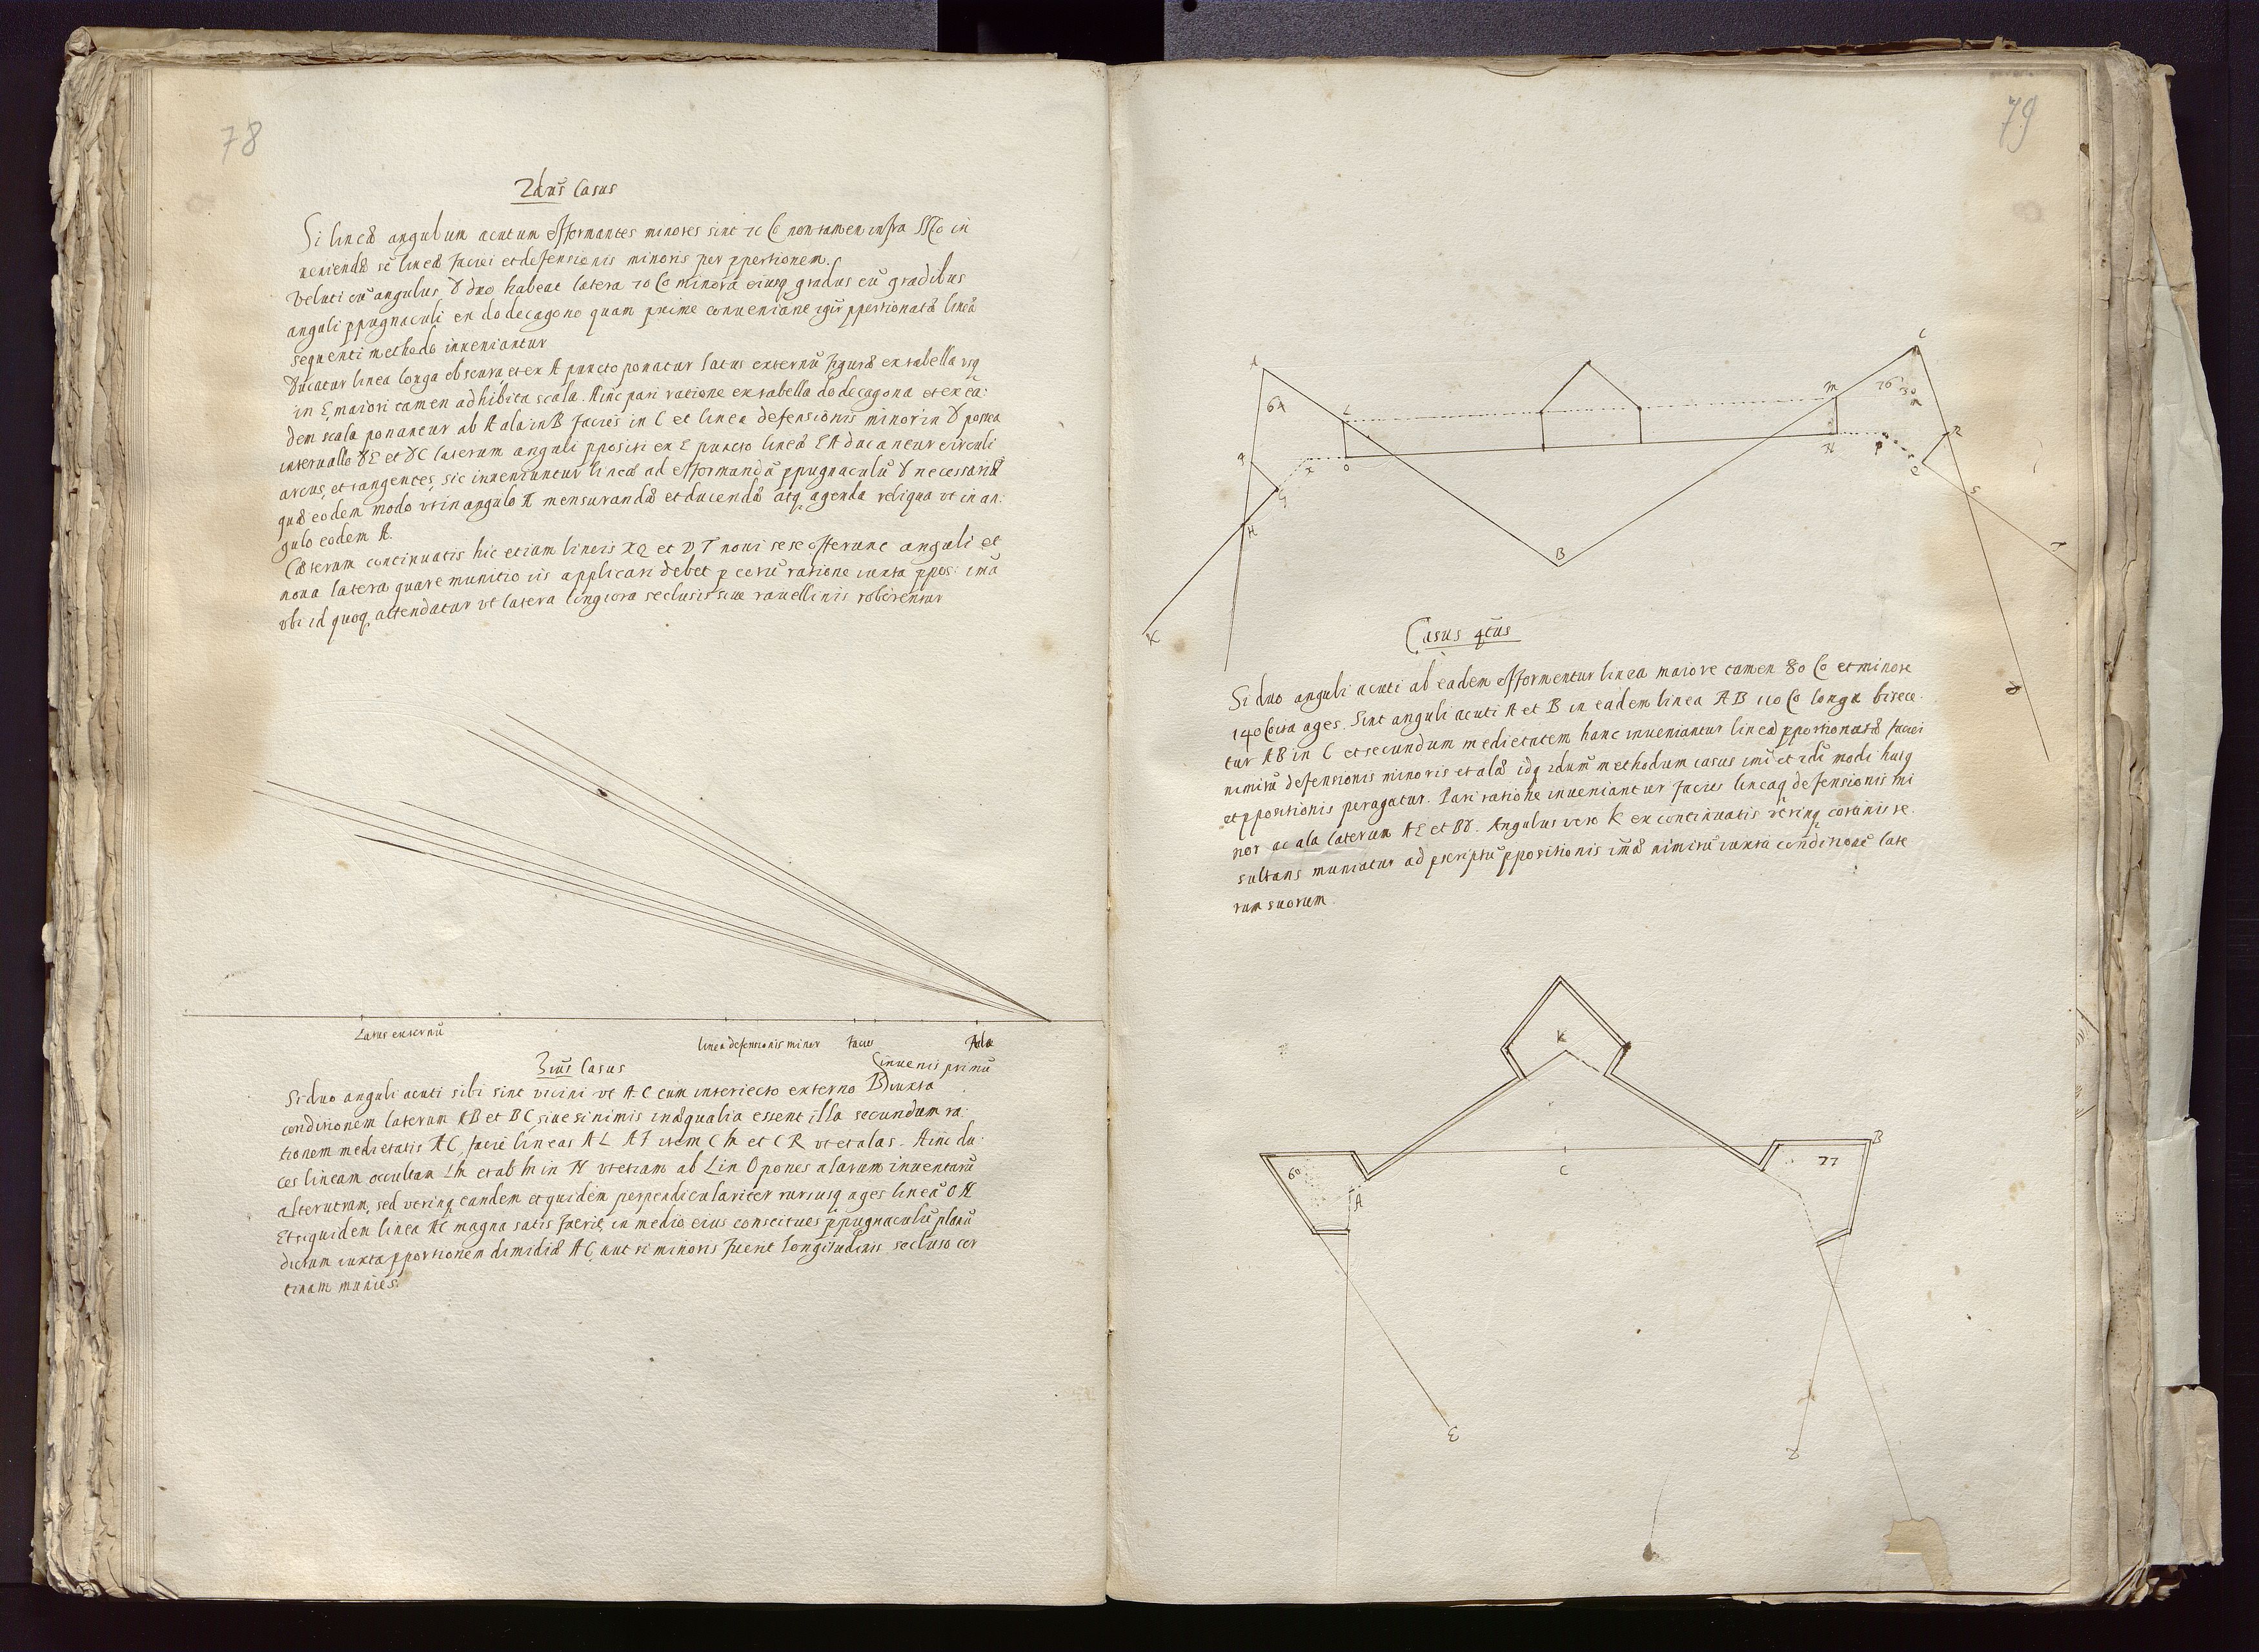 78
2dus Casus
Si lineæ angulum acutum efformantes minores sint 70 non tamen infra in
neniendæ sē lineæ faciei et defensionis minoris per pportionem.
Veluti cū angulus D duo habeat latera 70 minora eiusq gradus cū gradibus
anguli ppugnaculi ex dodecagono quam prime conueniant igir pportionatæ lineæ
sequenti methodo inueniantur
Ducatur linea longa obscura et ex A puncto ponatur latus externū figuræ ex tabella usq
in E, maiori tamen adhibita scala. Hinc pari ratione ex tabella dodecagona et ex eā:
dem scala ponantur ab A ala in B facies in C et linea defensionis minor in D postea
interuallo DE et DC laterum anguli ppositi ex E puncto lineæ EA ducantur circuli
arcus, et tangentes, sic inueniuntur lineæ ad efformandū ppugnaculū D necessariæ
quæ eodem modo ut in angulo A mensurandæ et ducendæ atq agenda reliqua ut in an:
gulo eodem A.
Cæterum continuatis hic etiam lineis XQ et VT noui sese offerunt anguli et
noua latera quare munitio iis applicari debet p eorū ratione iuxta ppos: imā
ubi id quoq attendatur ut latera longiora seclusis siue rauellinis roborentur
Latus externū
linea defensionis minor
Facies
Ala
3ius Casus
inuenis primū
Si duo anguli acuti sibi sint vicini ut A. C cum interiecto externo B iuxta
conditionem laterum AB et BC, siue si nimis inæqualia essent illa secundum ra:
tionem medietatis AC, facie lineas AL AI item CM et CR ut et alas. Hinc du:
ces lineam occultam LM et ab M in N ut etiam ab L in O pones alarum inuentarū
alterutram, sed utrinq eandem et quidem perpendiculariter rursusq ages lineā ON
Et siquidem linea AC magna satis fuerit, in medio eius constitues ppugnaculū planū
dictum iuxta pportionem dimidiæ AC, aut si minoris fuerit longitudinis secluso cor
tinam munies.
79
A
64
L
I
G
H
K
X
O
B
M
N
C
76
P
R
Q
S
T
D
Casus 4tus
Si duo anguli acuti ab eadem efformentur linea maiore tamen 80 et minore
140 ita ages. Sint anguli acuti A et B in eadem linea AB 110 longa bisece
tur AB in C et secundum medietatem hanc inueniantur lineæ pportionatæ faciei
nimirū defensionis minoris et alæ idq 2dum methodum casus imi et 2di modi huiq
et ppositionis peragatur. Pari ratione inueniantur facies lineaq defensionis mi
nor ac ala laterum AE et BD. Angulus vero K ex continuatis utrinq cortinis re:
sultans muniatur ad pscriptū ppositionis imæ nimirū iuxta conditionē late
rum suorum.
K
60
A
C
77
B
E
D